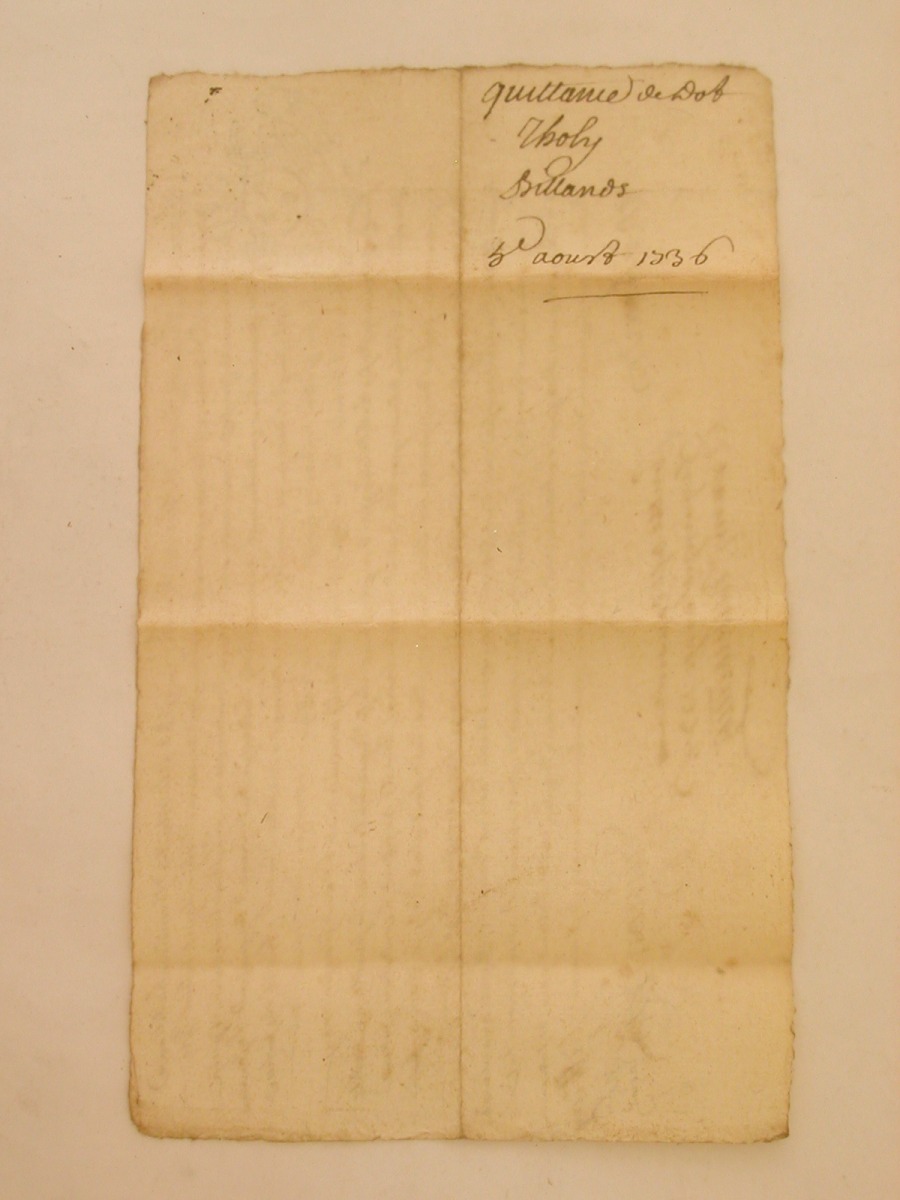 quittance de Dot
Tholy
Billands
5e aoust 1736